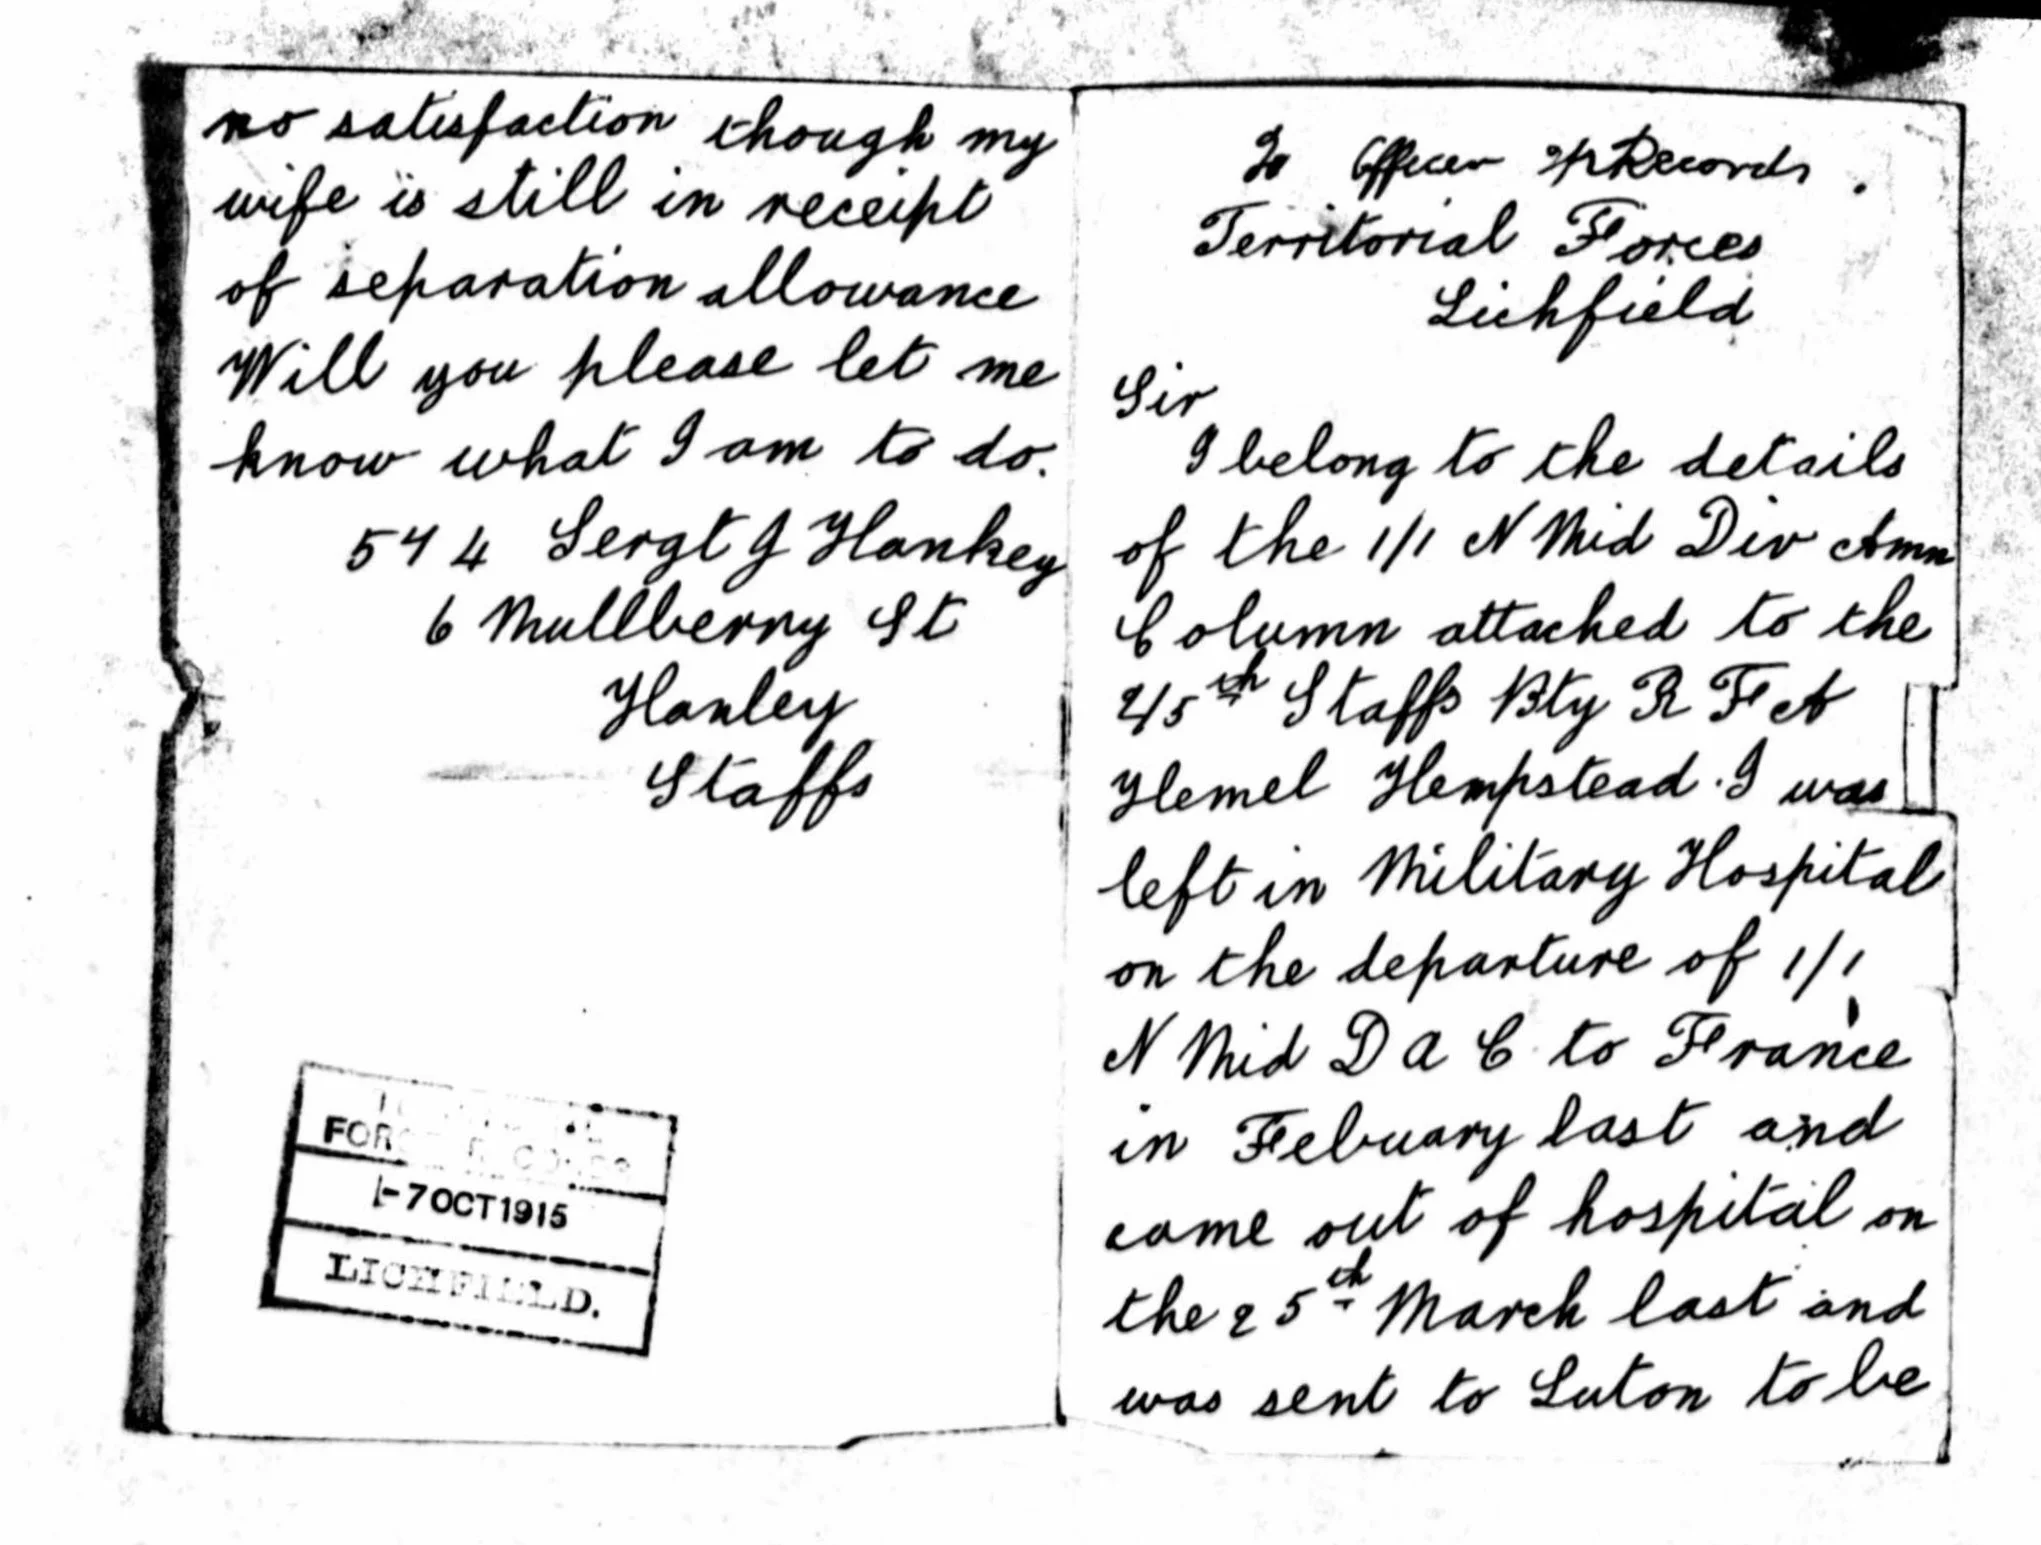 no satisfaction though my
wife is still in receipt
of separation allowance
Will you please let me
know what I am to do.
544 Sergt J Hankey
6 Mullberry St
Hanley
Staffs
FORCE RECORDS
-7 OCT 1915
LICHFIELD.
To Officer i/c Records.
Territorial Forces
Lichfield
Sir
I belong to the details
of the 1/1 N Mid Div Amn
Column attached to the
2/5th Staffs Bty R F A
Hemel Hempstead. I was
left in Military Hospital
on the departure of 1/1
N Mid D A C to France
in Febuary last and
came out of hospital on
the 25th March last and
was sent to Luton to be